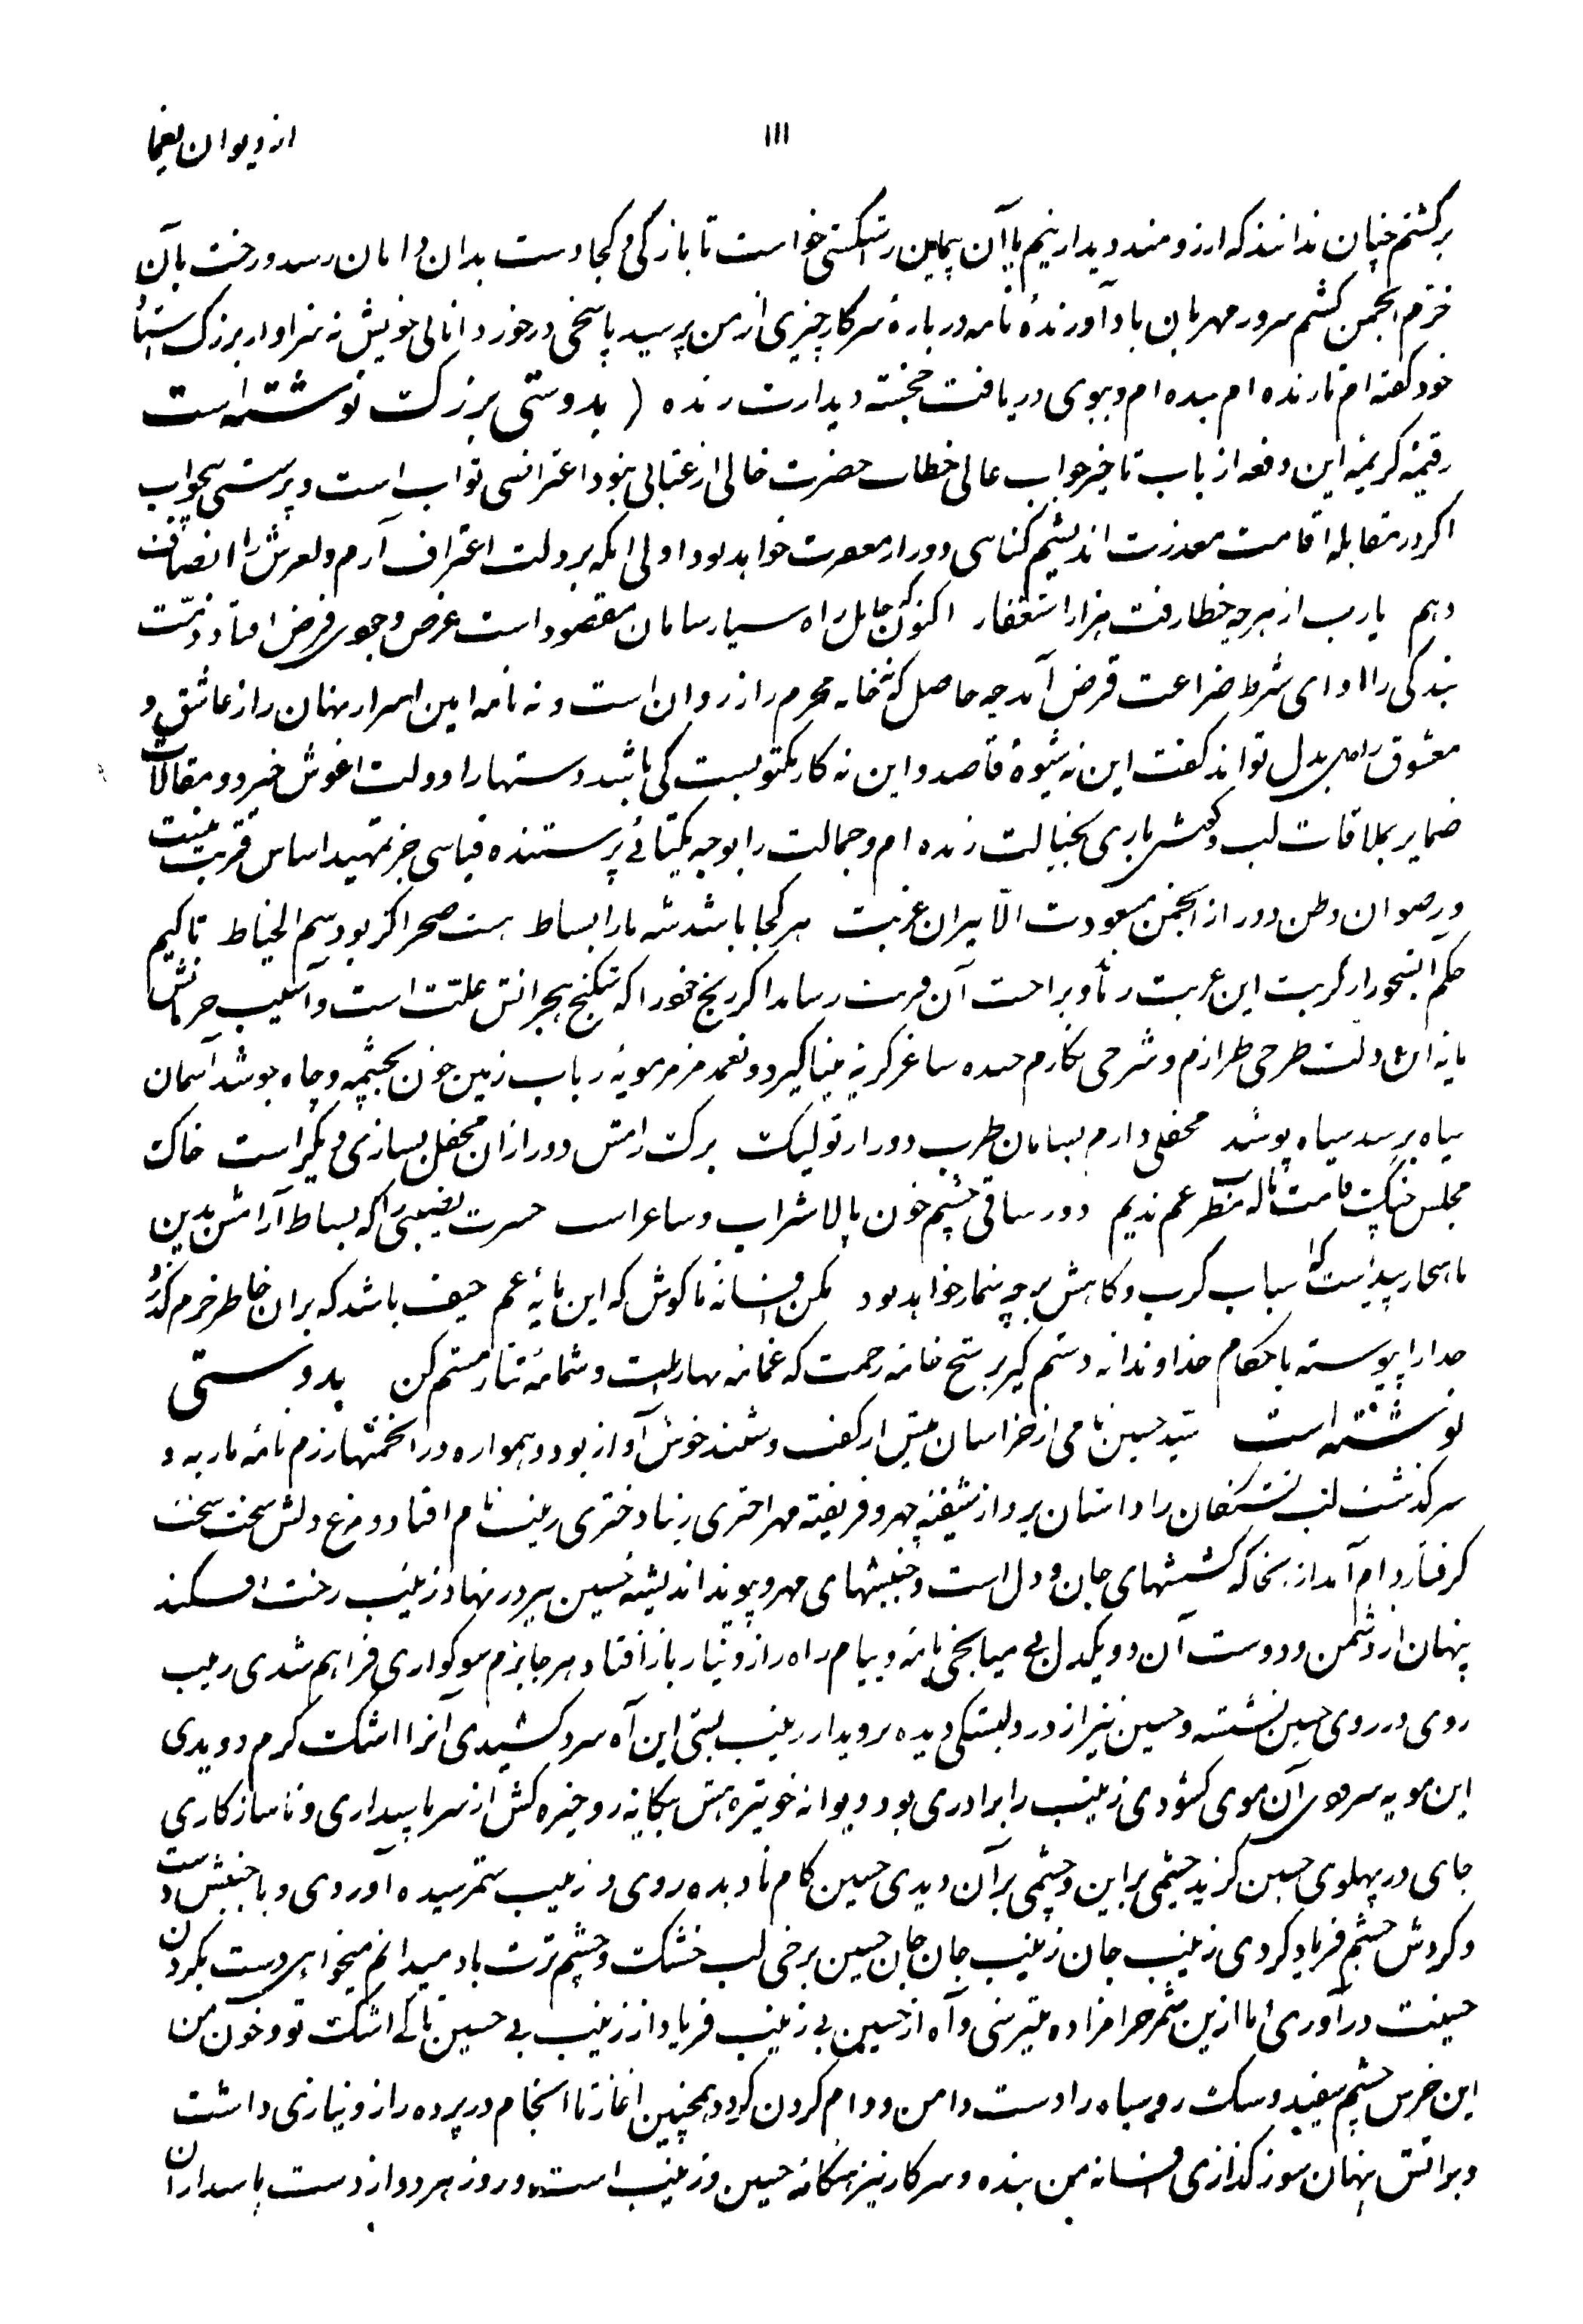 از دیوان یغما
۱۱۱
برگشتم چنان ندانند که ارزومند دیدار نیم یا آن پیمان رشکستی خواست تا باز کی و کجا دست بدان دامان رسد و رخت بآن
خرم انجمن کشم سرور مهربان باد آورنده نامه در باره سرکار چیزی از من پرسید پاسخی در خورد دانائی خویش نه سزاوار بزرک
خود گفته ام تا زنده ام بنده ام و ببوی دریافت خجسته دیدارت زنده ( بدوستی بزرک نوشته است
رقیمه کریمه این دفعه از باب تاخیر جواب عالی خطاب حضرت خالی از عتابی نبود اعتراضی صواب است و پرسشی بیجواب
اگر در مقابله اقامت معذرت اندیشم گناهی دور از مغفرت خواهد بود اولی آنکه بر ذلت اعتراف آرم و لغزش را انصاف
دهم یارب از هرچه خطا رفت هزار استغفار اکنون که حامل راه سپار سامان مقصود است عرض وجوبی فرض افتاد و ذمت
بندگی را ادای شرط ضراعت قرض آمد چه حاصل که نه خامه محرم راز روان است و نه نامه امین اسرار نهان راز عاشق و
معشوق را دل بدل تواند گفت این نه شیوهٔ قاصد و این نه کار مکتوبست کی باشد دستها را دولت اغوش خیزد و مقالات
ضمایر بملاقات لب و گوش باری بخیالت زنده ام و جمالت را بوجه یکتائی پرستنده قیاسی جز تمهید اساس قربت نیست
و رضوان وطن دور از انجمن مسعودت الا نیران غربت هر کجا باشد شه ما را بساط هست صحرا گر بود سم الخیاط تا کیم
حکم آبشخور از کربت این غربت رها و براحت آن قربت رساند اگر رنج خود را که شکنج هجرانش علت است و آسیب حرمانش
مایه این ذلت طرحی طرازم و شرحی نگارم خنده ساغر گریه مینا گیرد و نغمه مزمر مویه رباب زمین خون بچشمه و چاه جوشد آسمان
سیاه برسد سیاه پوشد محفلی دارم بسامان طرب دور از تو لیک برک رامش دور از ان محفل بسازی دیگر است خاک
مجلس چنک قامت ناله مطرب غم ندیم دور ساقی چشم خون پالا شراب و ساغر است حسرت نصیبی را که بساط آرامش بدین
ناهنجار پیداست که اسباب کرب و کاهش بر چه نمار خواهد بود مکن افسانه ما گوش که این مایهٔ غم حیف باشد که بران خاطر خرم گذرد
خدا را پیوسته باحکام خداوندانه دستم گیر بر شح خامه رحمت که غمامه بهار طیب و شمامه تتار مستم کن بدوستی
نوشته است سید حسین نامی از خراسان بیش از گفت و شنید خوش آواز بود و همواره در انجمنها رزم نامهٔ ماریه و
سرگذشت لب تشنگان را داستان پرداز شیفته چهر و فریفته مهر اختری زیبا دختری زینب نام افتاد و مرغ دلش سخت سخت
گرفتار دام آمد از آنجا که کششهای جان و دل است و جنبشهای مهر و پیوند اندیشه حسین نیز در نهاد زینب رخت افکند
پنهان از دشمن و دوست آن دو یکدل بی میانجی نامه و پیام راه راز و نیاز باز افتاد هر جا بزم سوگواری فراهم شدی زینب
روی در روی حسین نشسته و حسین نیز از در دلبستگی دیده بر دیدار زینب بستی این آه سرد کشیدی آنرا اشک گرم دویدی
این مویه سرودی آن موی گشودی زینب را برادری بود دیوانه خو تیره هش بیگانه رو خیره کش از سر ناپیداری و ناسازکاری
جای در پهلوی حسین گزید چشمی بر این و چشمی بر آن دیدی حسین کام نادیده روی در زینب ستمرسیده آوردی و با جنبش دست
و گردش چشم فریاد کردی زینب جان زینب جان جان حسین برخی لب خشک و چشم ترت باد میدانم میخواهی دست بگردن
حسینت در آوری اما ازین شمر حرامزاده میترسی و آه از حسین بی زینب فریاد از زینب بی حسین تا کی اشک تو و خون من
این خرس چشم سفید و سک رو سیاه را دست دامن و دام گردن گردد همچنین اغاز تا انجام در پرده راز و نیازی داشت
و بر آتش پنهان سوز گدازی افسانه من بنده و سرکار نیز هنگامه حسین و زینب است و روز هر دو از دست پاسداران